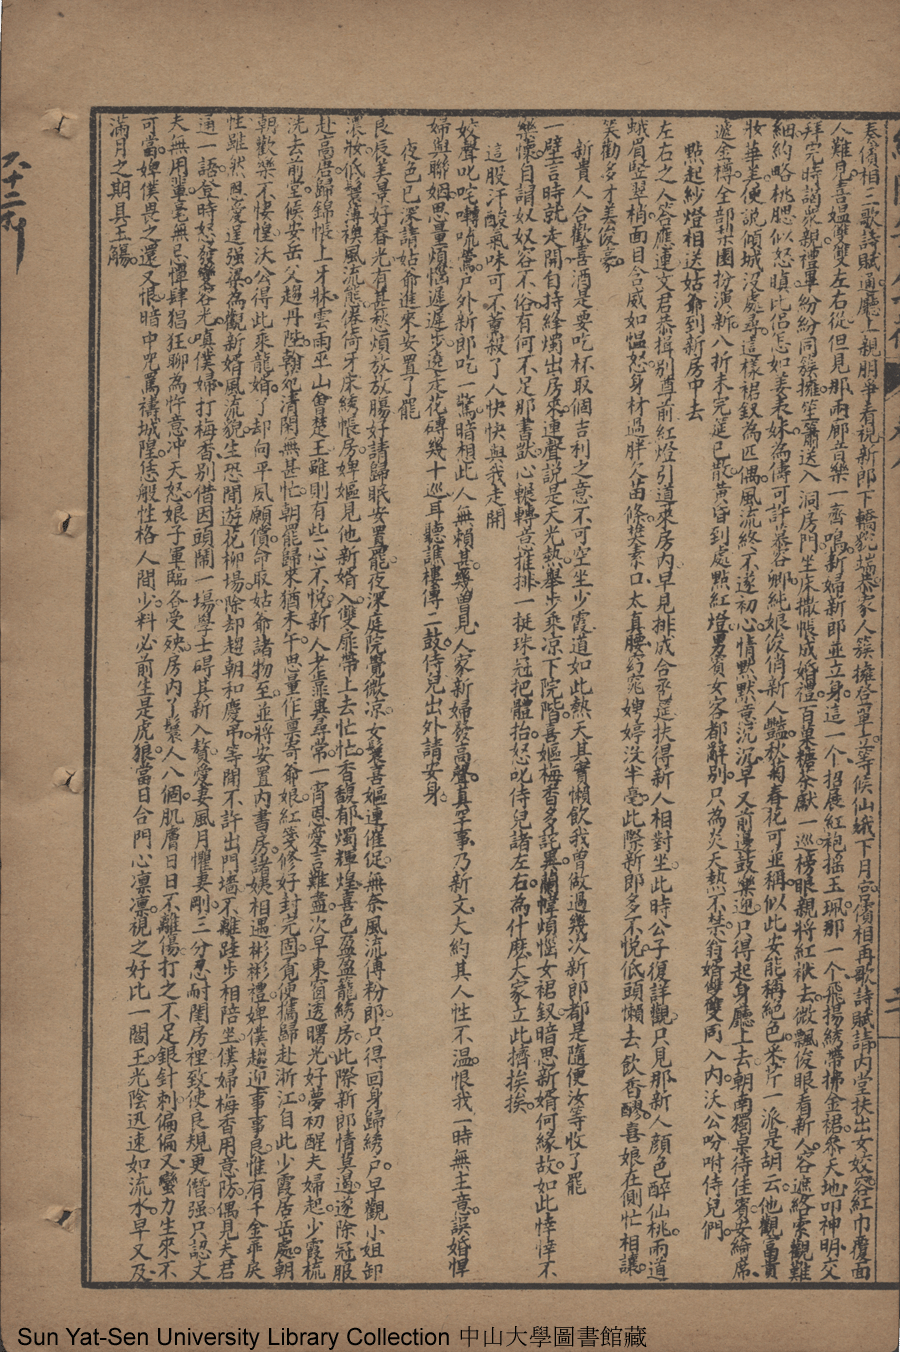 奏儐相二歌詩賦通廳上親朋爭看視新郎下轎貌端恭家人簇擁登單上等候仙娥下月宮儐相再歌詩賦請內堂扶出女姣容紅巾覆面
人難見喜媼雙雙左右從但見那兩廊音樂一齊鳴新婦新郎並立身這一个招展紅袍搖玉珮那一个飛揚綉帶拂金裙參天地叩神明交
拜完時謁眾親禮畢紛紛同簇擁笙簫送入洞房門坐床撒帳成婚禮百菓糖茶獻一巡榜眼親將紅袱去微飄俊眼看新人容遮絡索觀難
細約略桃腮似怒嗔比侶怎如姜表妹為儔可許慕容卿純娘俊俏新人豔秋菊春花可並稱似此安能稱絕色米芹一派是胡云他觀富貴
妝華美便說傾城沒處尋這樣裙釵為匹偶風流終不遂初心情默默意沉沉早又前邊鼓樂迎只得起身廳上去朝南獨桌待佳賓安綺席
遞金樽全部梨園扮演新八折未完筵已散黃昏到處點紅燈男賓女客都辭別只為炎天熱不禁翁婿雙雙同入內沃公吩咐侍兒們
點起紗燈相送姑爺到新房中去
左右之人答應連文君恭揖別尊前紅燈引道來房內早見排成合巹筵扶得新人相對坐此時公子復詳觀只見那新人顏色醉仙桃兩道
蛾眉豎翠梢面目含威如慍怒身材過胖欠苗條樊素口太真腰窈窕娉婷沒半毫此際新郎多不悅低頭懶去飲香醪喜娘在側忙相讓
笑勸多才美俊豪
新貴人合歡喜酒是要吃杯取個吉利之意不可空坐少霞道如此熱天其實懶飲我曾做過幾次新郎都是隨便汝等收了罷
一壁言時就走開自持絳燭出房來連聲說是天光熱舉步乘涼下院階喜嫗梅香多詫異蘭幃煩惱女裙釵暗思新婿何緣故如此悻悻不
樂懷自謂奴奴容不俗有何不足那書獃心輾轉意推排一挺珠冠把體抬怒叱侍兒諸左右為什麼大家立此擠挨挨
這股汗酸氣味可不薰殺了人快快與我走開
姣聲叱咤囀流鶯戶外新郎吃一驚暗相此人無賴甚幾曾見人家新婦發高聲真罕事乃新文大約其人性不溫恨我一時無主意誤婚悍
婦與聯姻思量煩惱遲遲步遶走花磚幾十巡耳聽譙樓傳二鼓侍兒出外請安身
夜色已深請姑爺進來安置了罷
良辰美景好春光有甚愁煩放放腸好請歸眠安置罷夜深庭院覺微涼女鬟喜嫗連催促無奈風流傅粉郎只得回身歸綉戶早觀小姐卸
濃妝低鬟薄襖風流態倦倚牙床綉帳房婢嫗見他新婿入雙扉帶上去忙忙香馥郁燭輝煌喜色盈盈籠綉房此際新郎情莫遏遂除冠服
赴高唐歸錦帳上牙牀雲雨巫山會楚王雖則有些心不悅新人老靠異尋常一宵恩愛言難盡次早東窗透曙光好夢初醒夫婦起少霞梳
洗去前堂候安岳父趨丹陛翰苑清閑無甚忙朝罷歸來猶未午思量作稟寄爺娘紅箋修好封完固覓便擕歸赴浙江自此少霞居岳處朝
朝歡樂不悽惶沃公得此乘龍婿了却向平夙願償命取姑爺諸物至並將安置內書房諸姨相遇彬彬禮婢僕趨迎事事良惟有千金乖戾
性雖然恩愛逞強梁為觀新婿風流貌生恐閒遊花柳場除却趨朝和慶弔等閒不許出門墻不離跬步相陪坐僕婦梅香用意防偶見夫君
通一語登時怒發變容光嗔僕婦打梅香別借因頭鬧一塲學士碍其新入贅愛妻風月懼妻剛三分忍耐閨房裡致使良規更僭強只認丈
夫無用輩毫無忌憚肆猖狂聊為忤意冲天怒娘子軍臨各受殃房內丫鬟人八個肌膚日日不離傷打之不足銀針刺偏偏又蠻力生來不
可當婢僕畏之還又恨暗中咒罵禱城隍恁般性格人間少料必前生是虎狼當日合門心凛凛視之好比一閻王光陰迅速如流水早又及
滿月之期具玉觴
Sun Yat-Sen University Library Collection 中山大學圖書館藏